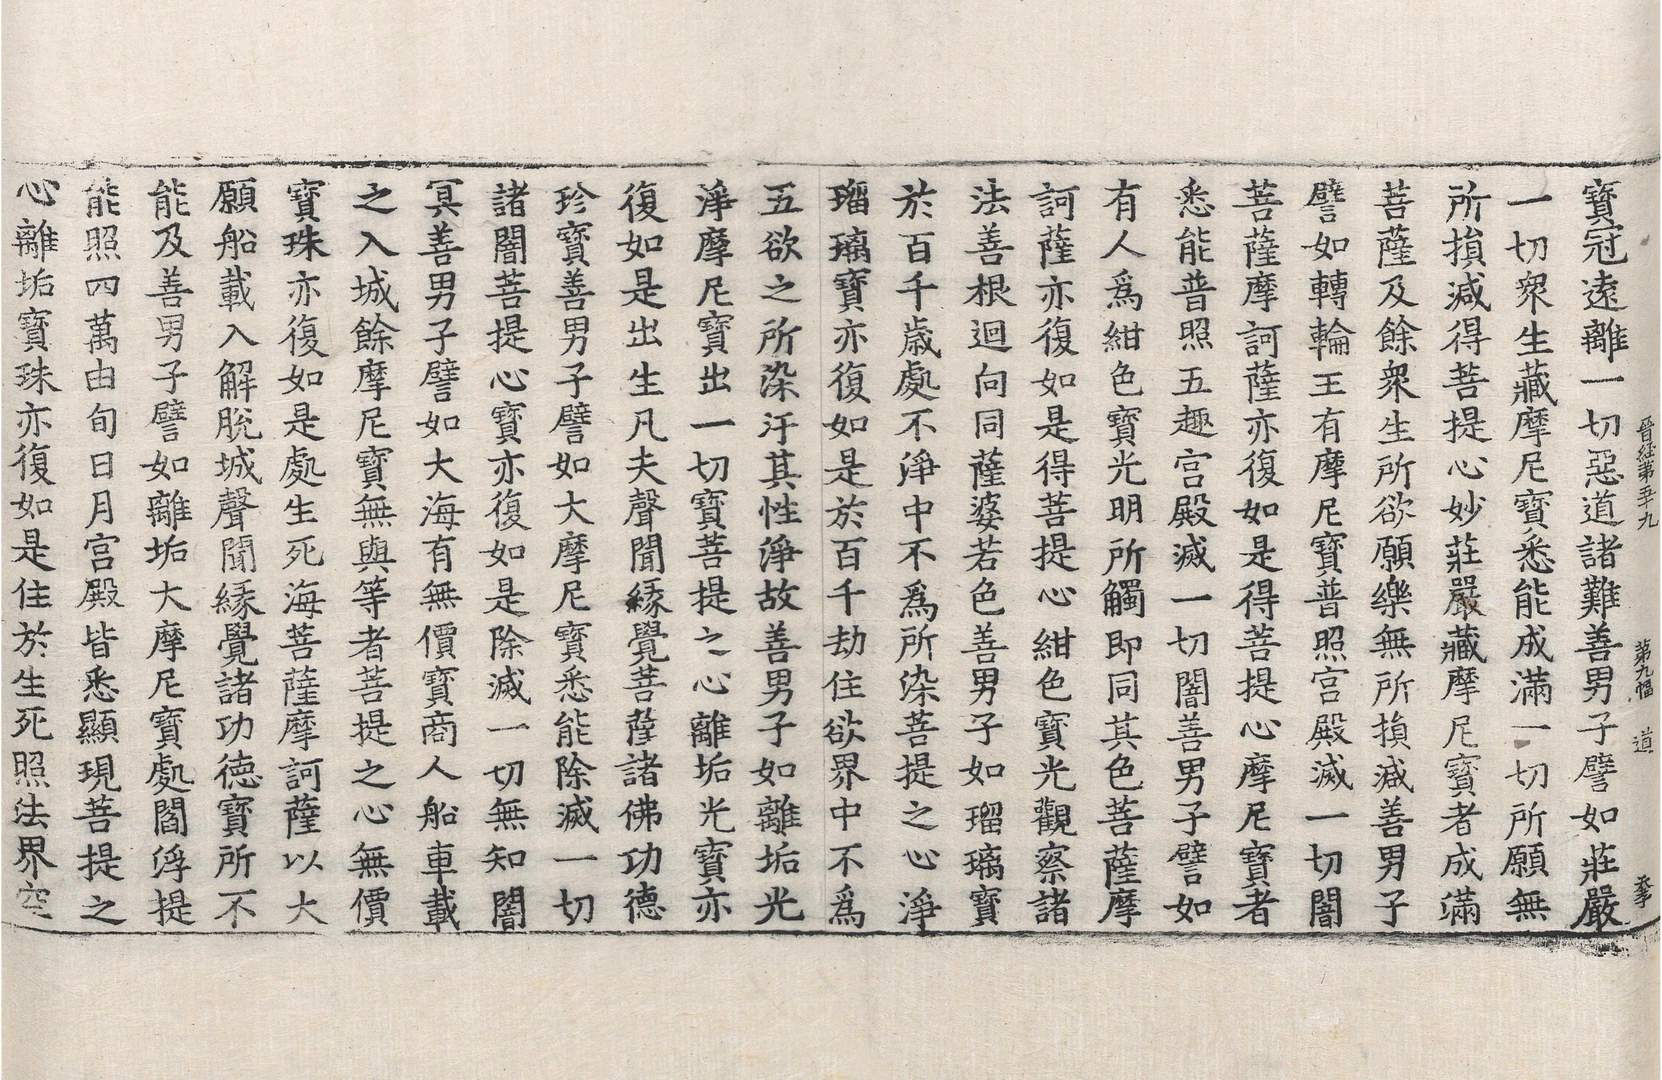 晉經第五十九 第九幅 道
寶冠遠離一切惡道諸難善男子譬如莊嚴
一切衆生藏摩尼寶悉能成滿一切所願無
所損減得菩提心妙莊嚴藏摩尼寶者成滿
菩薩及餘衆生所欲願樂無所損減善男子
譬如轉輪王有摩尼寶普照宮殿滅一切闇
菩薩摩訶薩亦復如是得菩提心摩尼寶者
悉能普照五趣宮殿滅一切闇善男子譬如
有人爲紺色寶光明所觸即同其色菩薩摩
訶薩亦復如是得菩提心紺色寶光觀察諸
法善根迴向同薩婆若色善男子如瑠璃寶
於百千歲處不淨中不爲所染菩提之心淨
瑠璃寶亦復如是於百千劫住欲界中不爲
五欲之所染汙其性淨故善男子如離垢光
淨摩尼寶出一切寶菩提之心離垢光寶亦
復如是出生凡夫聲聞緣覺菩薩諸佛功德
珍寶善男子譬如大摩尼寶悉能除滅一切
諸闇菩提心寶亦復如是除滅一切無知闇
冥善男子譬如大海有無價寶商人船車載
之入城餘摩尼寶無與等者菩提之心無價
寶珠亦復如是處生死海菩薩摩訶薩以大
願船載入解脫城聲聞緣覺諸功德寶所不
能及善男子譬如離垢大摩尼寶處閻浮提
能照四萬由旬日月宮殿皆悉顯現菩提之
心離垢寶珠亦復如是住於生死照法界空